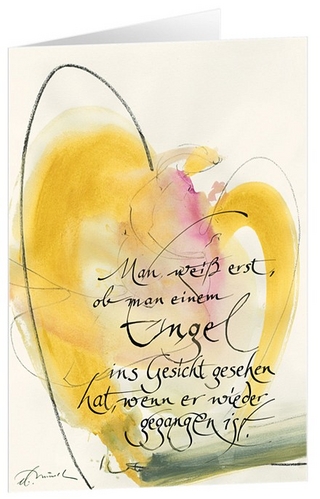 Man weiß erst,
ob man einem
Engel
ins Gesicht gesehen
hat, wenn er wieder
gegangen ist.